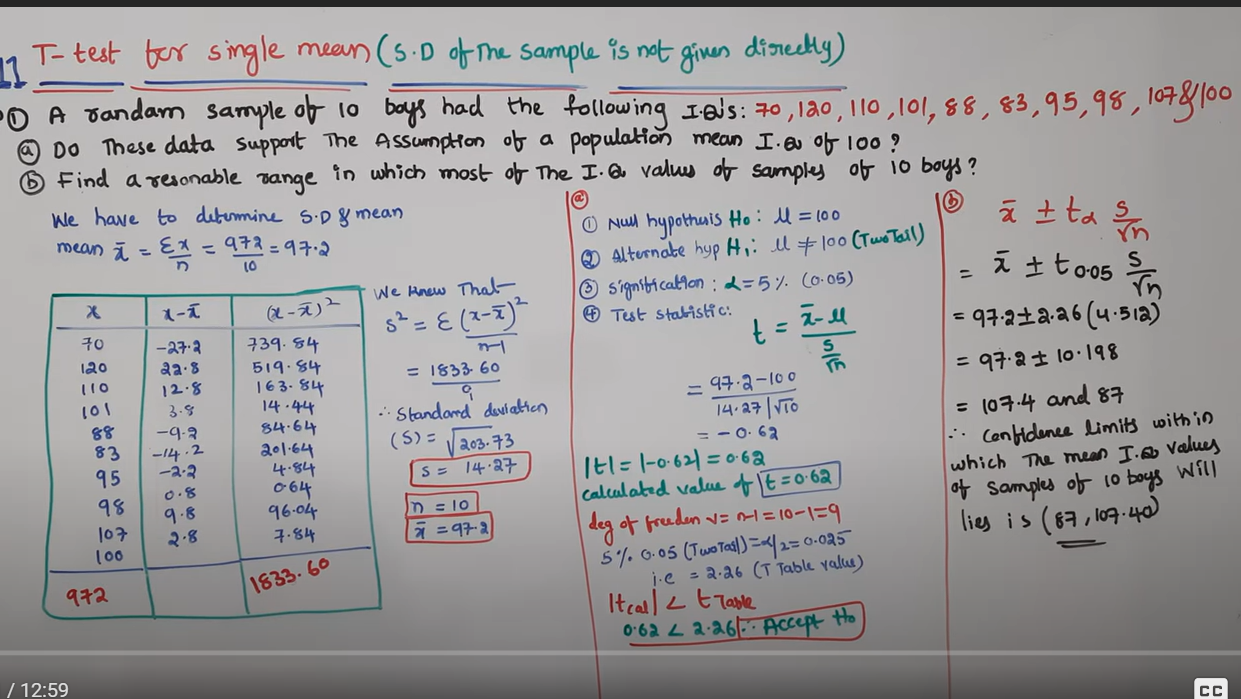 11 T-test for single mean (S.D of The sample is not given directly)
① A randam sample of 10 boys had the following I.Q's: 70, 120, 110, 101, 88, 83, 95, 98, 107 & 100
ⓐ Do These data support The Assumption of a population mean I.Q of 100?
ⓑ Find a resonable range in which most of The I.Q values of samples of 10 boys?
We have to determine S.D & mean
mean x̄ = Σx/n = 972/10 = 97.2
x | x-x̄ | (x-x̄)²
70 | -27.2 | 739.84
120 | 22.8 | 519.84
110 | 12.8 | 163.84
101 | 3.8 | 14.44
88 | -9.2 | 84.64
83 | -14.2 | 201.64
95 | -2.2 | 4.84
98 | 0.8 | 0.64
107 | 9.8 | 96.04
100 | 2.8 | 7.84
972 | | 1833.60
We knew That
S² = Σ(x-x̄)²/n-1
= 1833.60/9
∴ Standard deviation
(S) = √203.73
S = 14.27
n = 10
x̄ = 97.2
ⓐ
① Null hypothesis H₀: μ = 100
② Alternate hyp H₁: μ ≠ 100 (Two Tail)
③ Signification: α = 5% (0.05)
④ Test statistic:
t = x̄-μ / s/√n
= 97.2-100 / 14.27/√10
= -0.62
|t| = |-0.62| = 0.62
calculated value of t = 0.62
deg of freeden ν = n-1 = 10-1 = 9
5% 0.05 (Two Tail) = α/2 = 0.025
i.e = 2.26 (T Table value)
|tcal| < t Table
0.62 < 2.26 ∴ Accept H₀
ⓑ x̄ ± tα s/√n
= x̄ ± t0.05 s/√n
= 97.2 ± 2.26 (4.512)
= 97.2 ± 10.198
= 107.4 and 87
∴ Confidence limits with in
which The mean I.Q values
of samples of 10 boys will
lies is (87, 107.40)
/ 12:59
CC